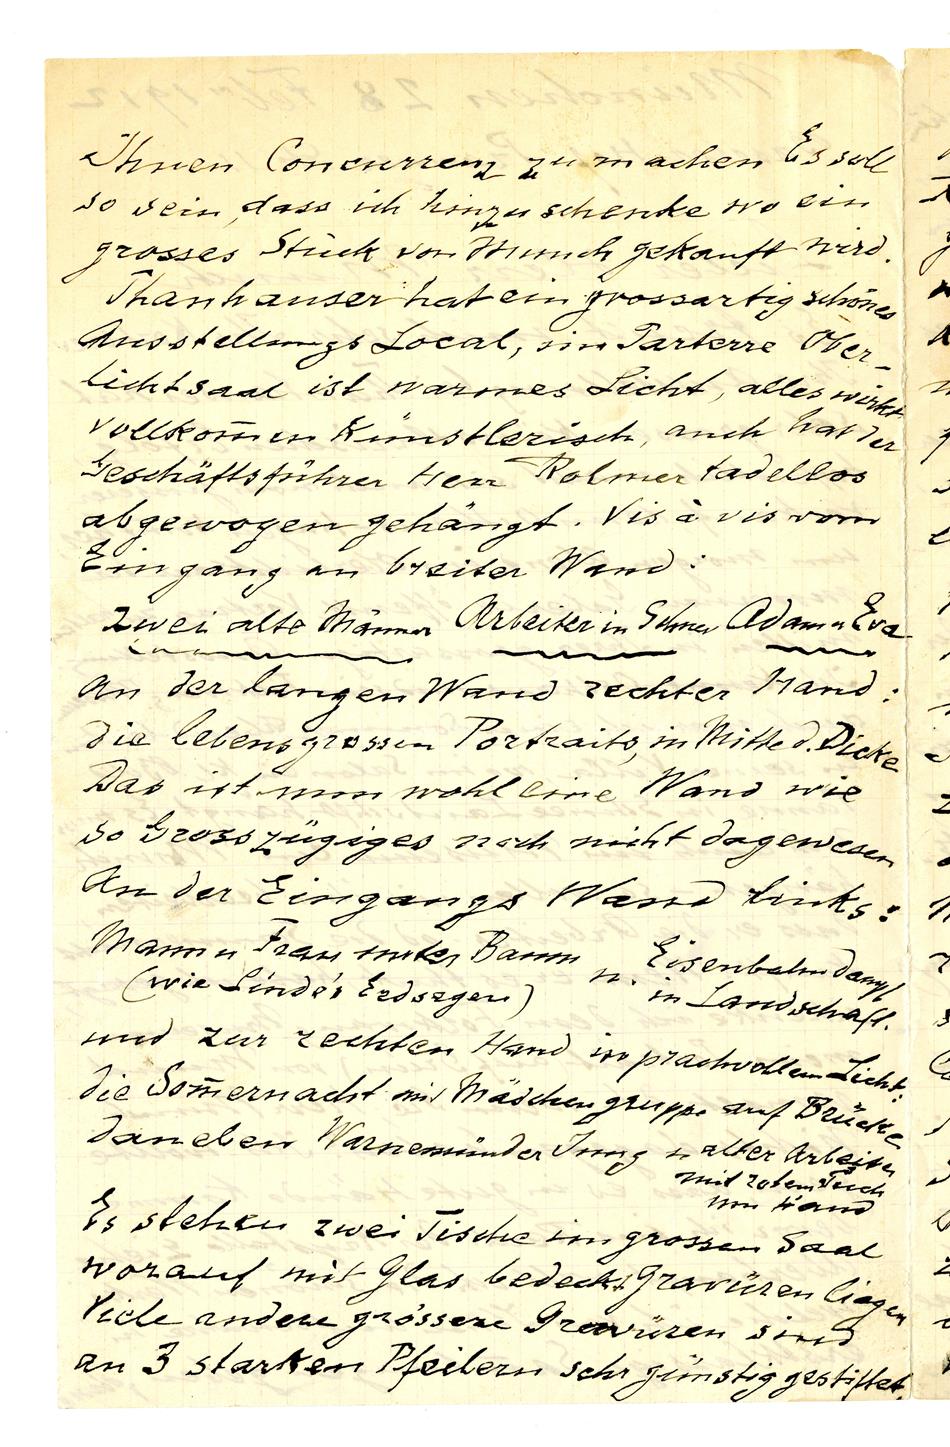 Ihnen Concurrenz zu machen Es soll
so sein, dass ich hinzu schenke wo ein
grosses Stück von Munch gekauft wird.
Thanhauser hat ein grossartig schönes
Ausstellungs Local, im Parterre Ober-
lichtsaal ist warmes Licht, alles wirkt
vollkom̅en Künstlerisch, auch hat der
Geschäftsführer Herr Rolmer tadellos
abgewogen gehängt. Vis à vis vom
Eingang an breiter Wand:
Zwei alte Männer Arbeiter in Schnee Adam u Eva
An der langen Wand rechter Hand:
die lebensgrossen Portraits, in Mitte d. Dicke
Das ist nun wohl eine Wand wie
so Grosszügiges noch nicht dagewesen
An der Eingangs Wand links:
Mann u Frau unter Baum u. Eisenbahndampf
(wie Linde's Erdsegen) in Landschaft.
und zur rechten Hand in prachvollem Licht:
die Som̅ernacht mit Mädchengruppe auf Brücke
daneben Warnemünder Jung u alter Arbeiter
mit rotem Tuch
um Hand
Es stehen zwei Tische im grossen Saal
worauf mit Glas bedeckt Gravüren liegen
Viele andere grössere Gravüren sind
an 3 starken Pfeilern sehr günstig gestiftet.